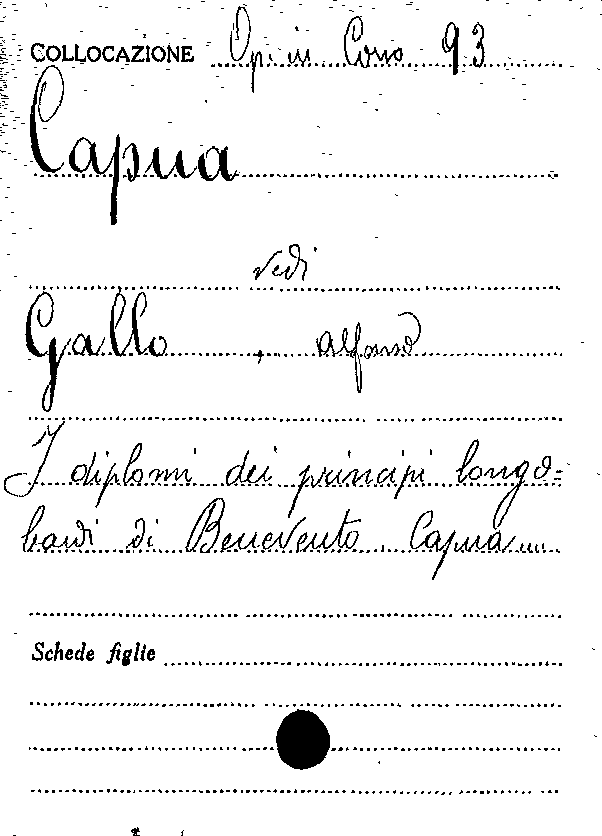 COLLOCAZIONE Op. in Corso 93
Capua
vedi
Gallo, Alfonso
I diplomi dei principi longo=
bardi di Benevento, Capua....
Schede figlie